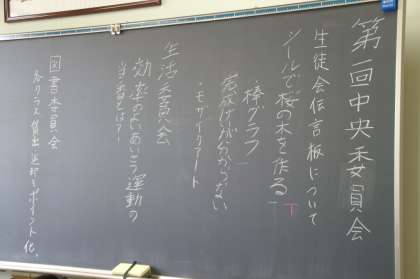 第一回中央委員会
生徒会伝言板について
シールで桜の木を作る
・棒グラフ
・モザイクアート
生活委員会
効率のよいあいさつ運動の
図書委員会
各クラス貸出
ポイント化、